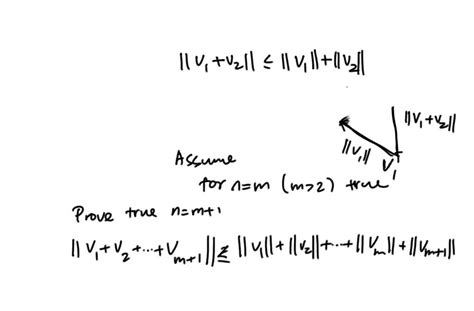 ||V₁+V₂|| ≤ ||V₁||+||V₂||
||V₁+V₂||
||V₁||
V₁
Assume
for n=m (m>2) true
Prove true n=m+1
||V₁+V₂+...+Vₘ₊₁|| ≤ ||V₁||+||V₂||+...+||Vₘ||+||Vₘ₊₁||